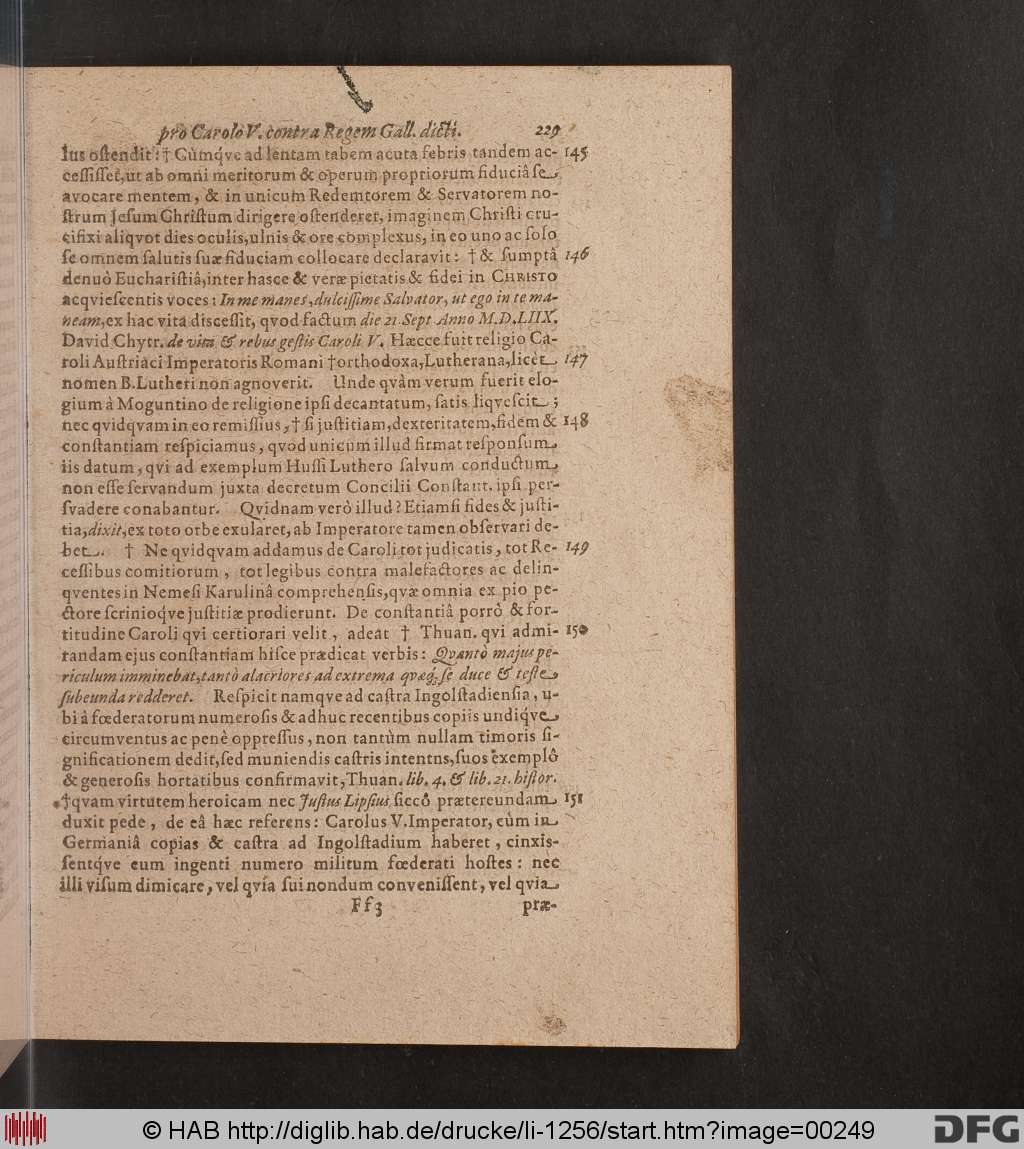 pro Carolo V. contra Regem Gall. dicti. 229
lus oſtendit: † Cùmq́ve ad lentam tabem acuta febris tandem ac- 145
ceſſiſſet, ut ab omni meritorum & operum propriorum fiduciâ ſe
avocare mentem, & in unicum Redemtorem & Servatorem no-
ſtrum Jeſum Chriſtum dirigere oſtenderet, imaginem Chriſti cru-
cifixi aliqvot dies oculis, ulnis & ore complexus, in eo uno ac ſolo
ſe omnem ſalutis ſuæ fiduciam collocare declaravit: † & ſumptâ 146
denuò Euchariſtiâ, inter hasce & veræ pietatis & fidei in CHRISTO
acqvieſcentis voces: In me manes, dulciſſime Salvator, ut ego in te ma-
neam, ex hac vita diſceſſit, qvod factum die 21 Sept Anno M.D.LIIX.
David Chytr. de vita & rebus geſtis Caroli V. Hæcce fuit religio Ca-
roli Auſtriaci Imperatoris Romani † orthodoxa, Lutherana, licèt 147
nomen B. Lutheri non agnoverit. Unde qvàm verum fuerit elo-
gium à Moguntino de religione ipſi decantatum, ſatis liqveſcit;
nec qvidqvam in eo remiſſius, † ſi juſtitiam, dexteritatem, fidem & 148
conſtantiam reſpiciamus, qvod unicum illud firmat reſponſum
iis datum, qvi ad exemplum Huſſi Luthero ſalvum conductum
non eſſe ſervandum juxta decretum Concilii Conſtant. ipſi per-
ſvadere conabantur. Qvidnam verò illud? Etiamſi fides & juſti-
tia, dixit, ex toto orbe exularet, ab Imperatore tamen obſervari de-
bet. † Ne qvidqvam addamus de Caroli tot judicatis, tot Re- 149
ceſſibus comitiorum, tot legibus contra malefactores ac delin-
qventes in Nemeſi Karulinâ comprehenſis, qvæ omnia ex pio pe-
ctore ſcrinioqve juſtitiæ prodierunt. De conſtantiâ porrò & for-
titudine Caroli qvi certiorari velit, adeat † Thuan. qvi admi- 150
randam ejus conſtantiam hiſce prædicat verbis: Qvantò majus pe-
riculum imminebat, tantò alacriores ad extrema qvæq; ſe duce & teſte
ſubeunda redderet. Reſpicit namqve ad caſtra Ingolſtadienſia, u-
bi à fœderatorum numeroſis & adhuc recentibus copiis undiq́ve
circumventus ac penè oppreſſus, non tantùm nullam timoris ſi-
gnificationem dedit, ſed muniendis caſtris intentns, ſuos exemplô
& generoſis hortatibus confirmavit, Thuan. lib. 4. & lib. 21. hiſtor.
† qvam virtutem heroicam nec Juſtus Lipſius ſiccô prætereundam 151
duxit pede, de eâ hæc referens: Carolus V. Imperator, cùm in
Germaniâ copias & caſtra ad Ingolſtadium haberet, cinxiſ-
ſentqve eum ingenti numero militum fœderati hoſtes: nec
illi viſum dimicare, vel qvia ſui nondum conveniſſent, vel qvia
Ff3 præ-
© HAB http://diglib.hab.de/drucke/li-1256/start.htm?image=00249
DFG